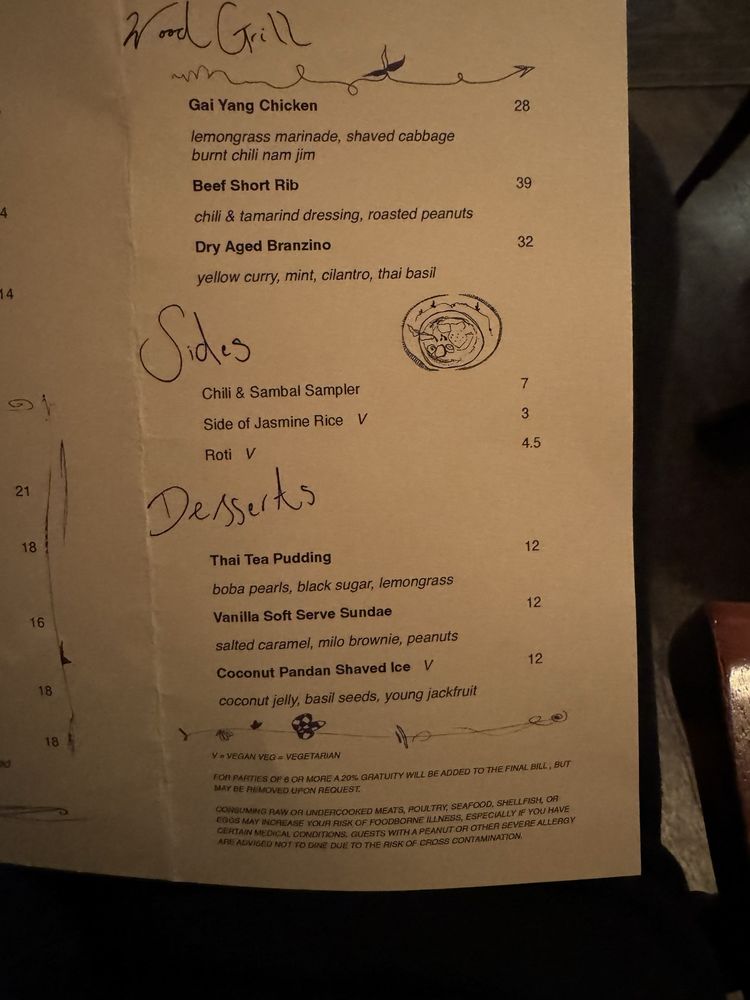 Wood Grill
Gai Yang Chicken 28
lemongrass marinade, shaved cabbage
burnt chili nam jim
Beef Short Rib 39
chili & tamarind dressing, roasted peanuts
Dry Aged Branzino 32
yellow curry, mint, cilantro, thai basil
Sides
Chili & Sambal Sampler 7
Side of Jasmine Rice V 3
Roti V 4.5
Desserts
Thai Tea Pudding 12
boba pearls, black sugar, lemongrass
Vanilla Soft Serve Sundae 12
salted caramel, milo brownie, peanuts
Coconut Pandan Shaved Ice V 12
coconut jelly, basil seeds, young jackfruit
V = VEGAN VEG = VEGETARIAN
FOR PARTIES OF 6 OR MORE A 20% GRATUITY WILL BE ADDED TO THE FINAL BILL, BUT
MAY BE REMOVED UPON REQUEST.
CONSUMING RAW OR UNDERCOOKED MEATS, POULTRY, SEAFOOD, SHELLFISH, OR
EGGS MAY INCREASE YOUR RISK OF FOODBORNE ILLNESS, ESPECIALLY IF YOU HAVE
CERTAIN MEDICAL CONDITIONS. GUESTS WITH A PEANUT OR OTHER SEVERE ALLERGY
ARE ADVISED NOT TO DINE DUE TO THE RISK OF CROSS CONTAMINATION.
4
14
21
18
16
18
18